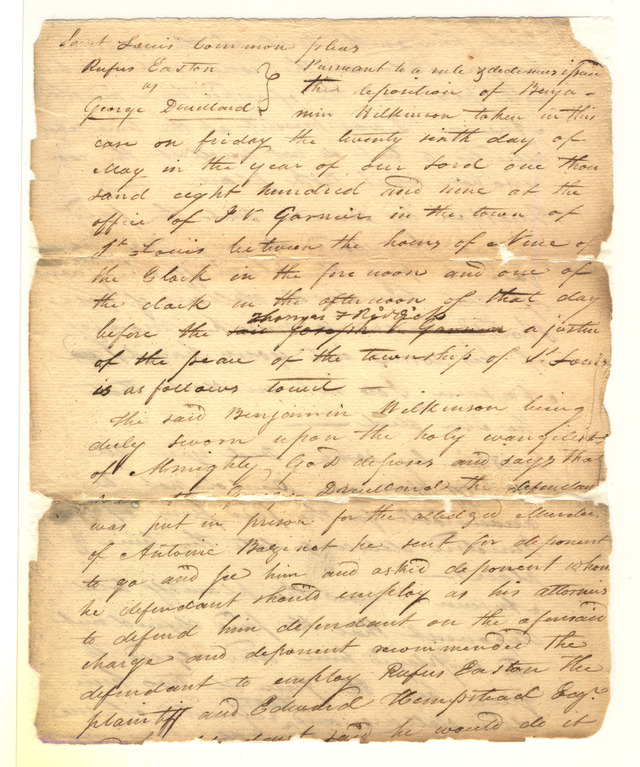 Saint Louis Common pleas
Rufus Easton
vs
George Druillard
Pursuant to a rule & dedimus
the deposition of Benja-
min Wilkinson taken in this
case on friday the twenty sixth day of
May in the year of our Lord one thou
sand eight hundred and nine at the
office of J V. Garnier in the town of
St. Louis between the hours of Nine of
the Clock in the fore noon and one of
the clock in the afternoon of that day
Thomas F Riddick
before the said Joseph V. Garnier a justice
of the peace of the township of St. Louis
is as follows towit —
The said Benjamin Wilkinson being
duly sworn upon the holy evangelist
of Almighty God deposes and says tha
Druillard the defendan
was put in prison for the alledged Murder
of Antoine Bazinet he sent for deponent
to go and see him and asked deponent whom
he defendant should employ as his attornies
to defend him defendant on the aforesaid
charge and deponent recommended the
defendant to employ Rufus Easton the
plaintiff and Edward Hempstead Esqr.
said he would do it